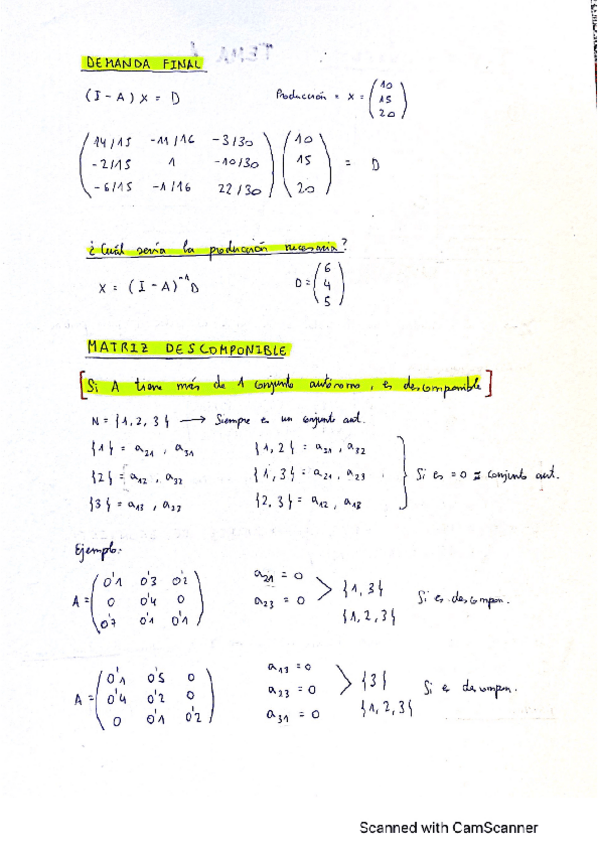 DEMANDA FINAL
(I - A) X = D    Producción = X = (10 15 20)
(14/15  -11/16  -3/30) (10)
(-2/15  1  -10/30) (15) = D
(-6/15  -1/16  22/30) (20)
¿Cuál sería la producción necesaria?
X = (I - A)⁻¹ D    D = (6 4 5)
MATRIZ DESCOMPONIBLE
[Si A tiene más de 1 conjunto autónomo, es descomponible]
N = {1, 2, 3} → Siempre es un conjunto aut.
{1} = a21, a31    {1, 2} = a31, a32
{2} = a12, a32    {1, 3} = a21, a23    Si es = 0 conjunto aut.
{3} = a13, a23    {2, 3} = a12, a13
Ejemplo:
A = (0'1  0'3  0'2)    a21 = 0
(0  0'4  0)    a23 = 0 > {1, 3}    Si es descompon.
(0'7  0'1  0'1)    {1, 2, 3}
A = (0'1  0'5  0)    a13 = 0
(0'4  0'2  0)    a23 = 0 > {3}    Si es descompon.
(0  0'1  0'2)    a31 = 0    {1, 2, 3}
Scanned with CamScanner